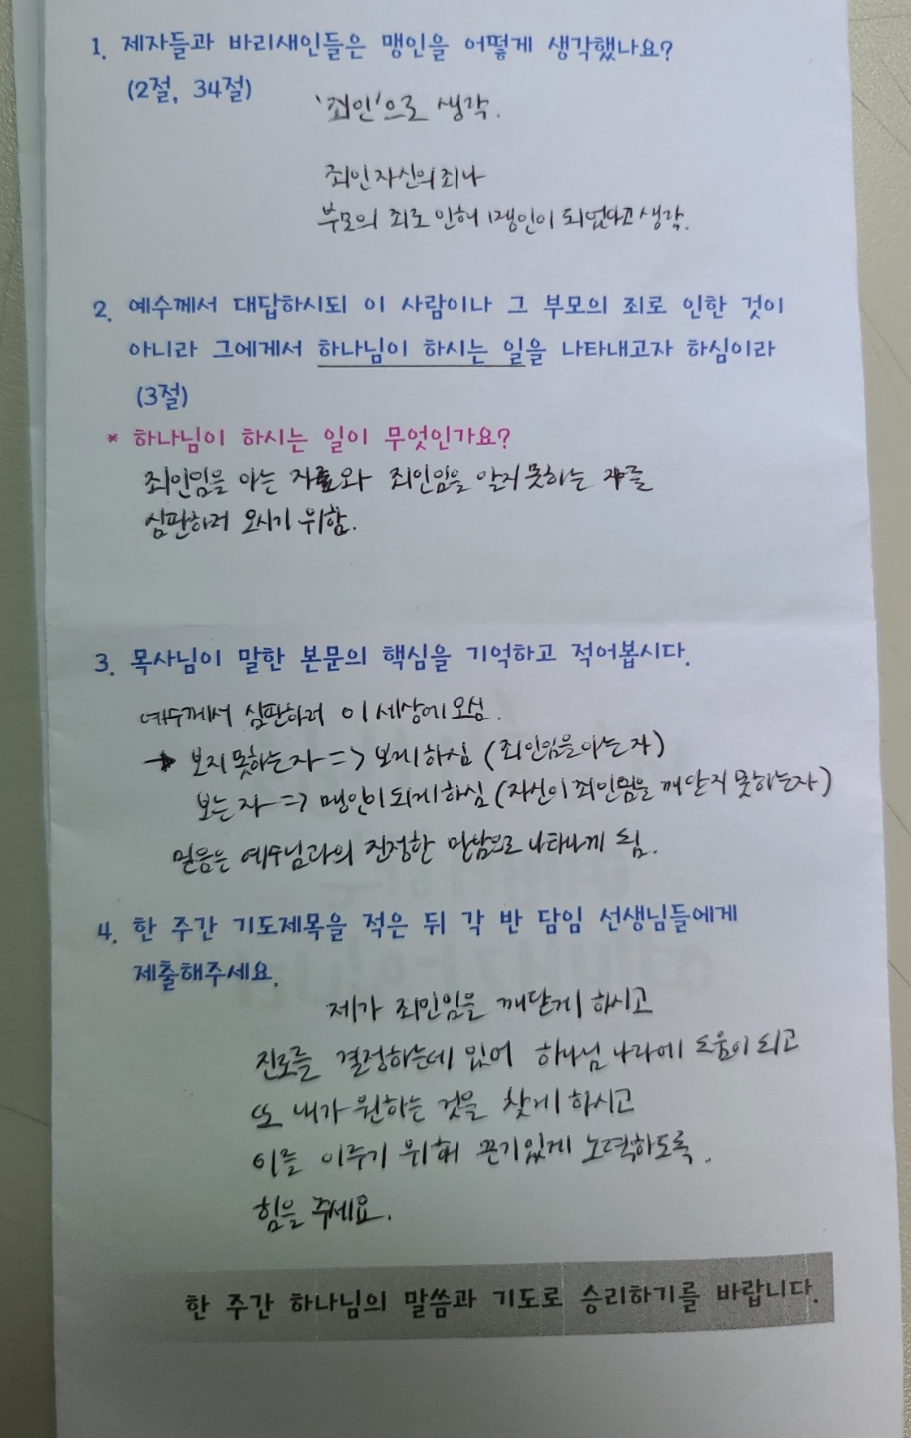 1. 제자들과 바리새인들은 맹인을 어떻게 생각했나요?
(2절, 34절)
'죄인'으로 생각.
죄인 자신의 죄나
부모의 죄로 인해 맹인이 되었다고 생각.
2. 예수께서 대답하시되 이 사람이나 그 부모의 죄로 인한 것이
아니라 그에게서 하나님이 하시는 일을 나타내고자 하심이라
(3절)
* 하나님이 하시는 일이 무엇인가요?
죄인임을 아는 자와 죄인임을 알지 못하는 자를
심판하러 오시기 위함.
3. 목사님이 말한 본문의 핵심을 기억하고 적어봅시다.
예수께서 심판하러 이 세상에 오심.
→ 보지 못하는 자 => 보게 하심 (죄인임을 아는 자)
보는 자 => 맹인이 되게 하심 (자신이 죄인임을 깨닫지 못하는 자)
믿음은 예수님과의 진정한 만남으로 나타나게 됨.
4. 한 주간 기도제목을 적은 뒤 각 반 담임 선생님들에게
제출해주세요.
제가 죄인임을 깨닫게 하시고
진로를 결정하는데 있어 하나님 나라에 도움이 되고
또 내가 원하는 것을 찾게 하시고
이를 이루기 위해 끈기있게 노력하도록.
힘을 주세요.
한 주간 하나님의 말씀과 기도로 승리하기를 바랍니다.